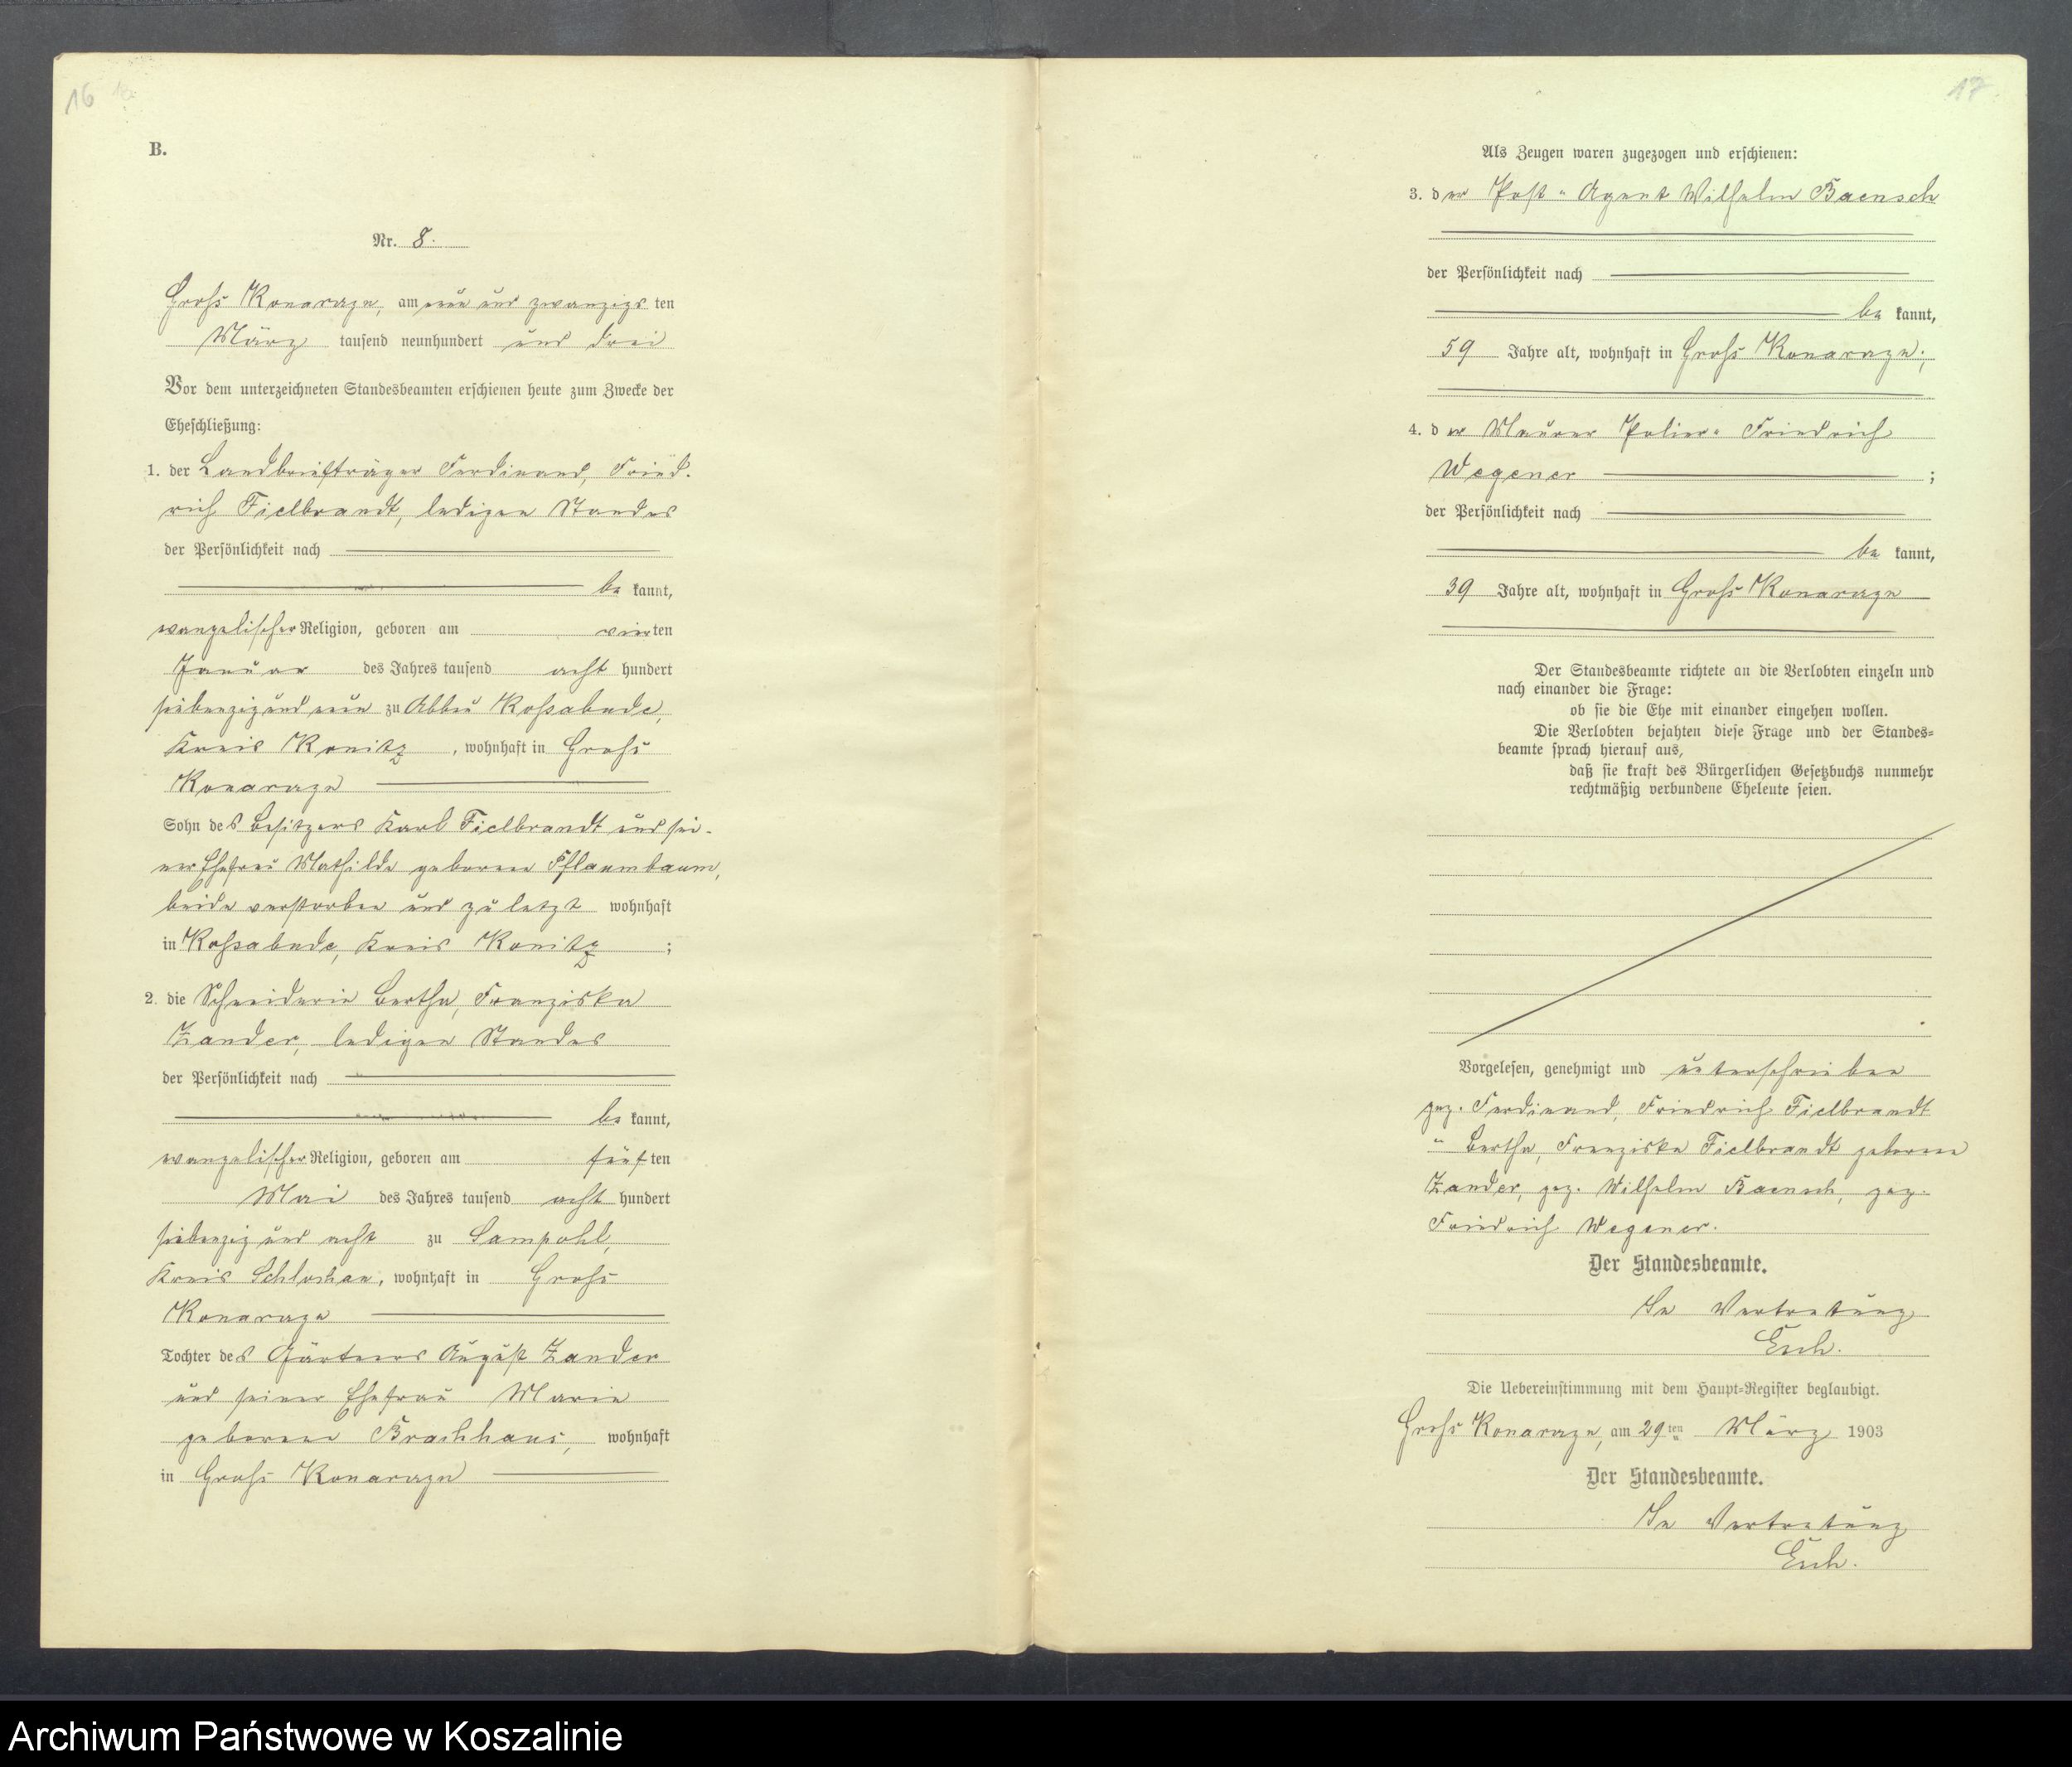 16
B.
Nr. 8.
Gross Konarzyn, am neun und zwanzigs ten
März tausend neunhundert und drei
Vor dem unterzeichneten Standesbeamten erschienen heute zum Zwecke der
Eheschließung:
1. der Landbriefträger Ferdinand, Fried-
rich Fielbrandt, ledigen Standes
der Persönlichkeit nach
be kannt,
evangelischer Religion, geboren am vier ten
Januar des Jahres tausend acht hundert
siebenzig und neun zu Abbau
Kreis Konitz, wohnhaft in Gross
Konarzyn
Sohn des Besitzers Karl Fielbrandt und sei-
ner Ehefrau Mathilde geborene Pflaumbaum,
beide verstorben und zuletzt wohnhaft
in Kreis Konitz;
2. die Schneiderin Bertha, Franziska
Zander, ledigen Standes
der Persönlichkeit nach
be kannt,
evangelischer Religion, geboren am fünf ten
Mai des Jahres tausend acht hundert
siebenzig und acht zu Sampohl,
Kreis Schlochau, wohnhaft in Gross
Konarzyn
Tochter des Gärtners August Zander
und seiner Ehefrau Marie
geborene wohnhaft
in Gross Konarzyn
17
Als Zeugen waren zugezogen und erschienen:
3. der Post-Agent Wilhelm Baensch
der Persönlichkeit nach
be kannt,
59 Jahre alt, wohnhaft in Gross Konarzyn;
4. der Maurer Polier Friedrich
Wegener ;
der Persönlichkeit nach
be kannt,
39 Jahre alt, wohnhaft in Gross Konarzyn
Der Standesbeamte richtete an die Verlobten einzeln und
nach einander die Frage:
ob sie die Ehe mit einander eingehen wollen.
Die Verlobten bejahten diese Frage und der Standes-
beamte sprach hierauf aus,
daß sie kraft des Bürgerlichen Gesetzbuchs nunmehr
rechtmäßig verbundene Eheleute seien.
Vorgelesen, genehmigt und unterschrieben
gez. Ferdinand, Friedrich Fielbrandt
" Bertha, Franziska Fielbrandt geborene
Zander, gez. Wilhelm Baensch, gez.
Friedrich Wegener.
Der Standesbeamte.
In Vertretung
Die Uebereinstimmung mit dem Haupt-Register beglaubigt.
Gross Konarzyn, am 29ten März 1903
Der Standesbeamte.
In Vertretung
Archiwum Państwowe w Koszalinie